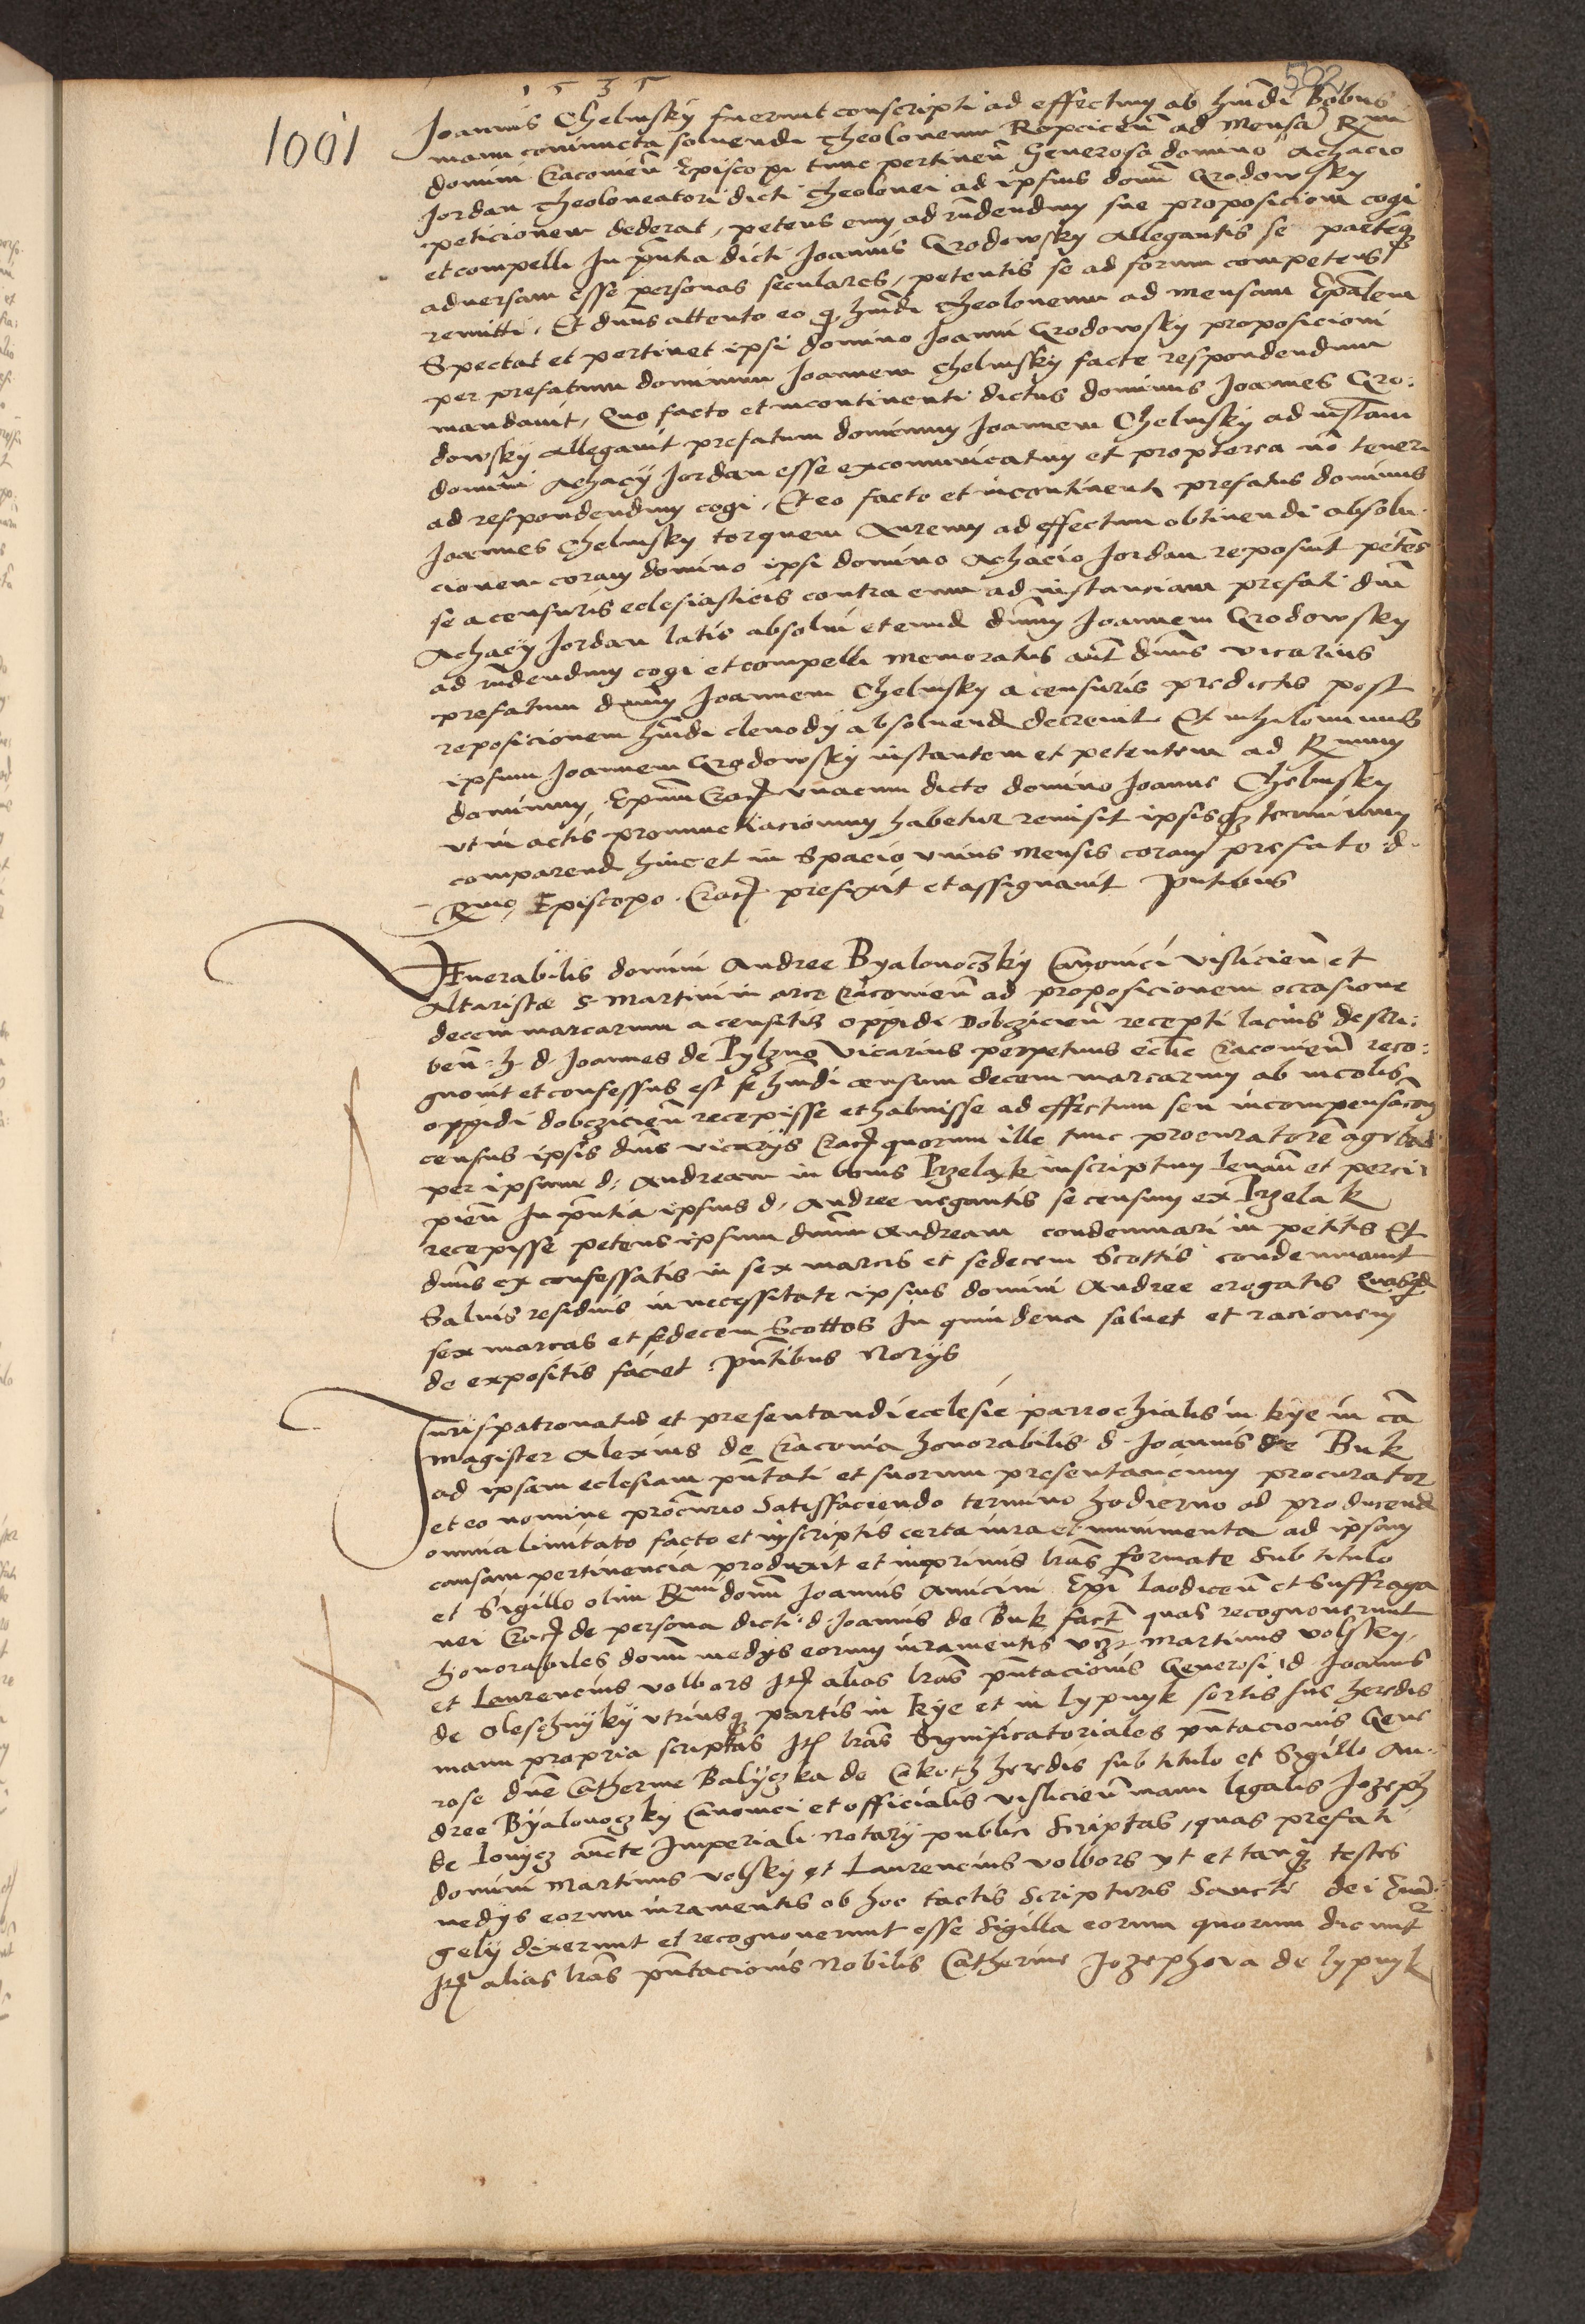 1535
502
1001
Joannis Chelmsky fuerunt conscripti ad effectum ab hmōi bobus
manu coniuncta soluendi theoloneum Ropcicen̄ ad Mensā Rmi
domini Cracouien̄ Episcopi tunc pertinen̄ Generoso domino Achacio
Jordan theoloneatori dicti theolonei ad ipsius domī Grodowsky
peticionem dederat, petens eum ad rn̄dendum sue proposicioni cogi
et compelli In pn̄tia dicti Joannis Grodowsky allegantis se partēqꝫ
aduersam esse personas seculares, petentis se ad forum competens
remitti, Et dn̄us attento eo ꝙ hmōi theoloneum ad Mensam Ep̄alem
Spectat et pertinet ipsi domino Joanni Grodowsky proposicioni
per prefatum dominum Joannem Chelmsky facte respondendum
mandauit, Quo facto et incontinenti dictus dominus Joannes Gro:
dowsky allegauit prefatum dominum Joannem Chelmsky ad instām
domini Achacÿ Jordan esse excomunicatum et propterea nō teneri
ad respondendum cogi, Et eo facto et incontinenti prefatus dominus
Joannes Chelmsky torquem Aureum ad effectum obtinendi absolu-
cionem coram domino ipsi domino Achacio Jordan reposuit petens
se a censuris eclesiasticis contra eum ad instanciam prefati dn̄i
Achacÿ Jordan latis absolui et eund dn̄um Joannem Grodowsky
ad rn̄dendum cogi et compelli Memoratus aūt dn̄us vicarius
prefatum dn̄um Joannem Chelmsky a censuris predictis post
reposicionem hmōi clenodÿ absoluend decreuit Et nihilominus
ipsum Joannem Grodowsky instantem et petentem ad Rmum
dominum Ep̄um Crac̄ vnacum dicto domino Joanne Chelmsky
vt in actis pronunctiacionum habetur remisit ipsisqꝫ terminum
comparend hinc et in Spacio vnius Mensis coram prefato d.
Rmo Episcopo Crac̄ prefixit et assignauit pn̄tibus
Venerabilis domini Andree Byalonoczky Canonici Visliciен̄ et
Altaristæ S. Martini in arce Cracouien̄ ad proposicionem occasione
decem marcarum a censitis oppidi Dobczicien̄ recepti lacius descri:
ben̄. h d. Joannes de Pylzno Vicarius perpetuus ecclie Cracouien̄ reco:
gnouit et confessus est se hmōi censum decem marcarum ab incolis
oppidi dobczicien̄ recepisse et habuisse ad effectum seu in compensacōm
census ipsis dn̄is vicarÿs Crac̄ quorum ille tunc procuratorē agebat
per ipsum d. Andream in bonis Przelayk inscriptum leuan̄ et perci:
pien̄ In pn̄tia ipsius d. Andree negantis se censum ex Przelak
recepisse petens ipsum dn̄um Andream condemnari in petitis Et
dn̄us ex confessatis in sex marcis et sedecem Scottis condemnauit
Saluis residuis in necessitate ipsius domini Andree erogatis Quasqd
sex marcas et sedecem Scottos In quindena soluet et racionem
de expositis faciet pn̄tibus Norÿs
Jurispatronatus et presentandi ecclesie parrochialis in kÿe in cā
Magister Alexius de Cracouia honorabilis d. Joannis de Buk
ad ipsam eclesiam pn̄tati et suorum presentancium procurator
et eo nomine procurio Satisfaciendo termino hodierno ad producend
omnia limitato facto et in scriptis certa iura et munimenta ad ipsam
causam pertinencia produxit et inprimis lrās formate sub titulo
et Sigillo olim Rmi domī Joannis Amicini Ep̄i Laodicen̄ et Suffraga
nei Crac̄ de persona dicti d. Joannis de Buk fact̄ quas recognouerunt
honorabiles domī medÿs eorum iuramentis vꝫ Martinus volsky
et Laurencius volbors Jtē alias lrās pn̄tacionis Generosi d. Joannis
de Oleschnÿky vtriusqꝫ partis in kÿe et in lypnyk sortis sue heredis
manu propria scriptas Jtē lrās Significatoriales pn̄tacionis Gene
rose dn̄e Catherine Balyczka de Okoth heredis sub titulo et Sigillo An-
dree Byalonoczky Canonici et officialis vislicien̄ manu legalis Jozeph
de Lonycz aucte Imperiali Notarÿ publici Scriptas, quas prefati
domini Martinus volsky et Laurencius volbors vt et tanqꝫ testes
medÿs eorum iuramentis ob hoc tactis Scripturis Sancti dei Euan:
gelÿ dixerunt et recognouerunt esse Sigilla eorum quorum dicuntr
Jtē alias lrās pn̄tacionis Nobilis Catherine Jozephova de lypnyk